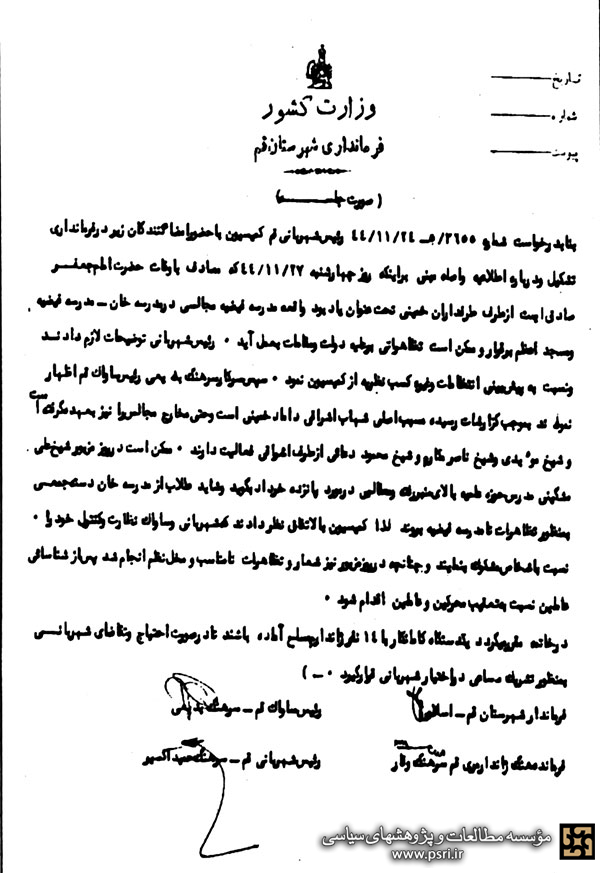 تاریخ
شماره
پیوست
وزارت کشور
فرمانداری شهرستان قم
( صورت جلسه )
بنابدرخواست شماره ۲۶۵۵/ ـ ۴۴/۱۱/۲۴ رئیس شهربانی قم کمیسیون با حضور امضا کنندگان زیر در فرمانداری
تشکیل ودرباره اطلاعیه واصله مبنی براینکه روز چهارشنبه ۴۴/۱۱/۲۷ که مصادف باوفات حضرت امام جعفر
صادق است ازطرف طرفداران خمینی تحت عنوان یاد بود واقعه مدرسه فیضیه مجالسی درمدرسه خان ـ مدرسه فیضیه
ومسجد اعظم برقرار و ممکن است تظاهراتی برعلیه دولت ومقامات بعمل آید ۰ رئیس شهربانی توضیحات لازم دادند
ونسبت به پیش بینی انتظامات وغیره کسب نظریه از کمیسیون نمود ۰ سپس سرکار سرهنگ بدیعی رئیس ساواک قم اظهار
نمودند بموجب گزارشات رسیده مسبب اصلی شهاب اشراقی داماد خمینی است وحتی مخارج مجالس را نیز بعهده گرفته است
و شیخ مؤیدی وشیخ ناصر مکارم و شیخ محمود دعائی ازطرف اشراقی فعالیت دارند ۰ ممکن است در روز مزبور شیخ علی
مشکینی مدرس حوزه علمیه بالای منبررفته ومطالبی درمورد پانزده خرداد بگوید وشاید طلاب از مدرسه خان دستجمعی
بمنظور تظاهرات تا مدرسه فیضیه بروند لذا کمیسیون بالاتفاق نظر دادند که شهربانی وساواک نظارت وکنترل خود را ۰
نسبت باشخاص مشکوک بنمایند و چنانچه در روز مزبور نیز شعار و تظاهرات نامناسب و مخل نظم انجام شد پس از شناسائی
عاملین نسبت به تعقیب محرکین و عاملین اقدام شود ۰
درخاتمه مقرر میگردد یکدستگاه کامانکار با ۱۴ نفر ژاندارم مسلح آماده باشند تا درصورت احتیاج وتقاضای شهربانی
بمنظور تشریک مساعی در اختیار شهربانی قرارگیرد ۰ ـ )
فرماندار شهرستان قم ـ
رئیس ساواک قم ـ سرهنگ بدیعی
فرمانده هنگ ژاندارمری قم سرهنگ وقار
رئیس شهربانی قم ـ سرهنگ
مؤسسه مطالعات و پژوهشهای سیاسی
www.psri.ir